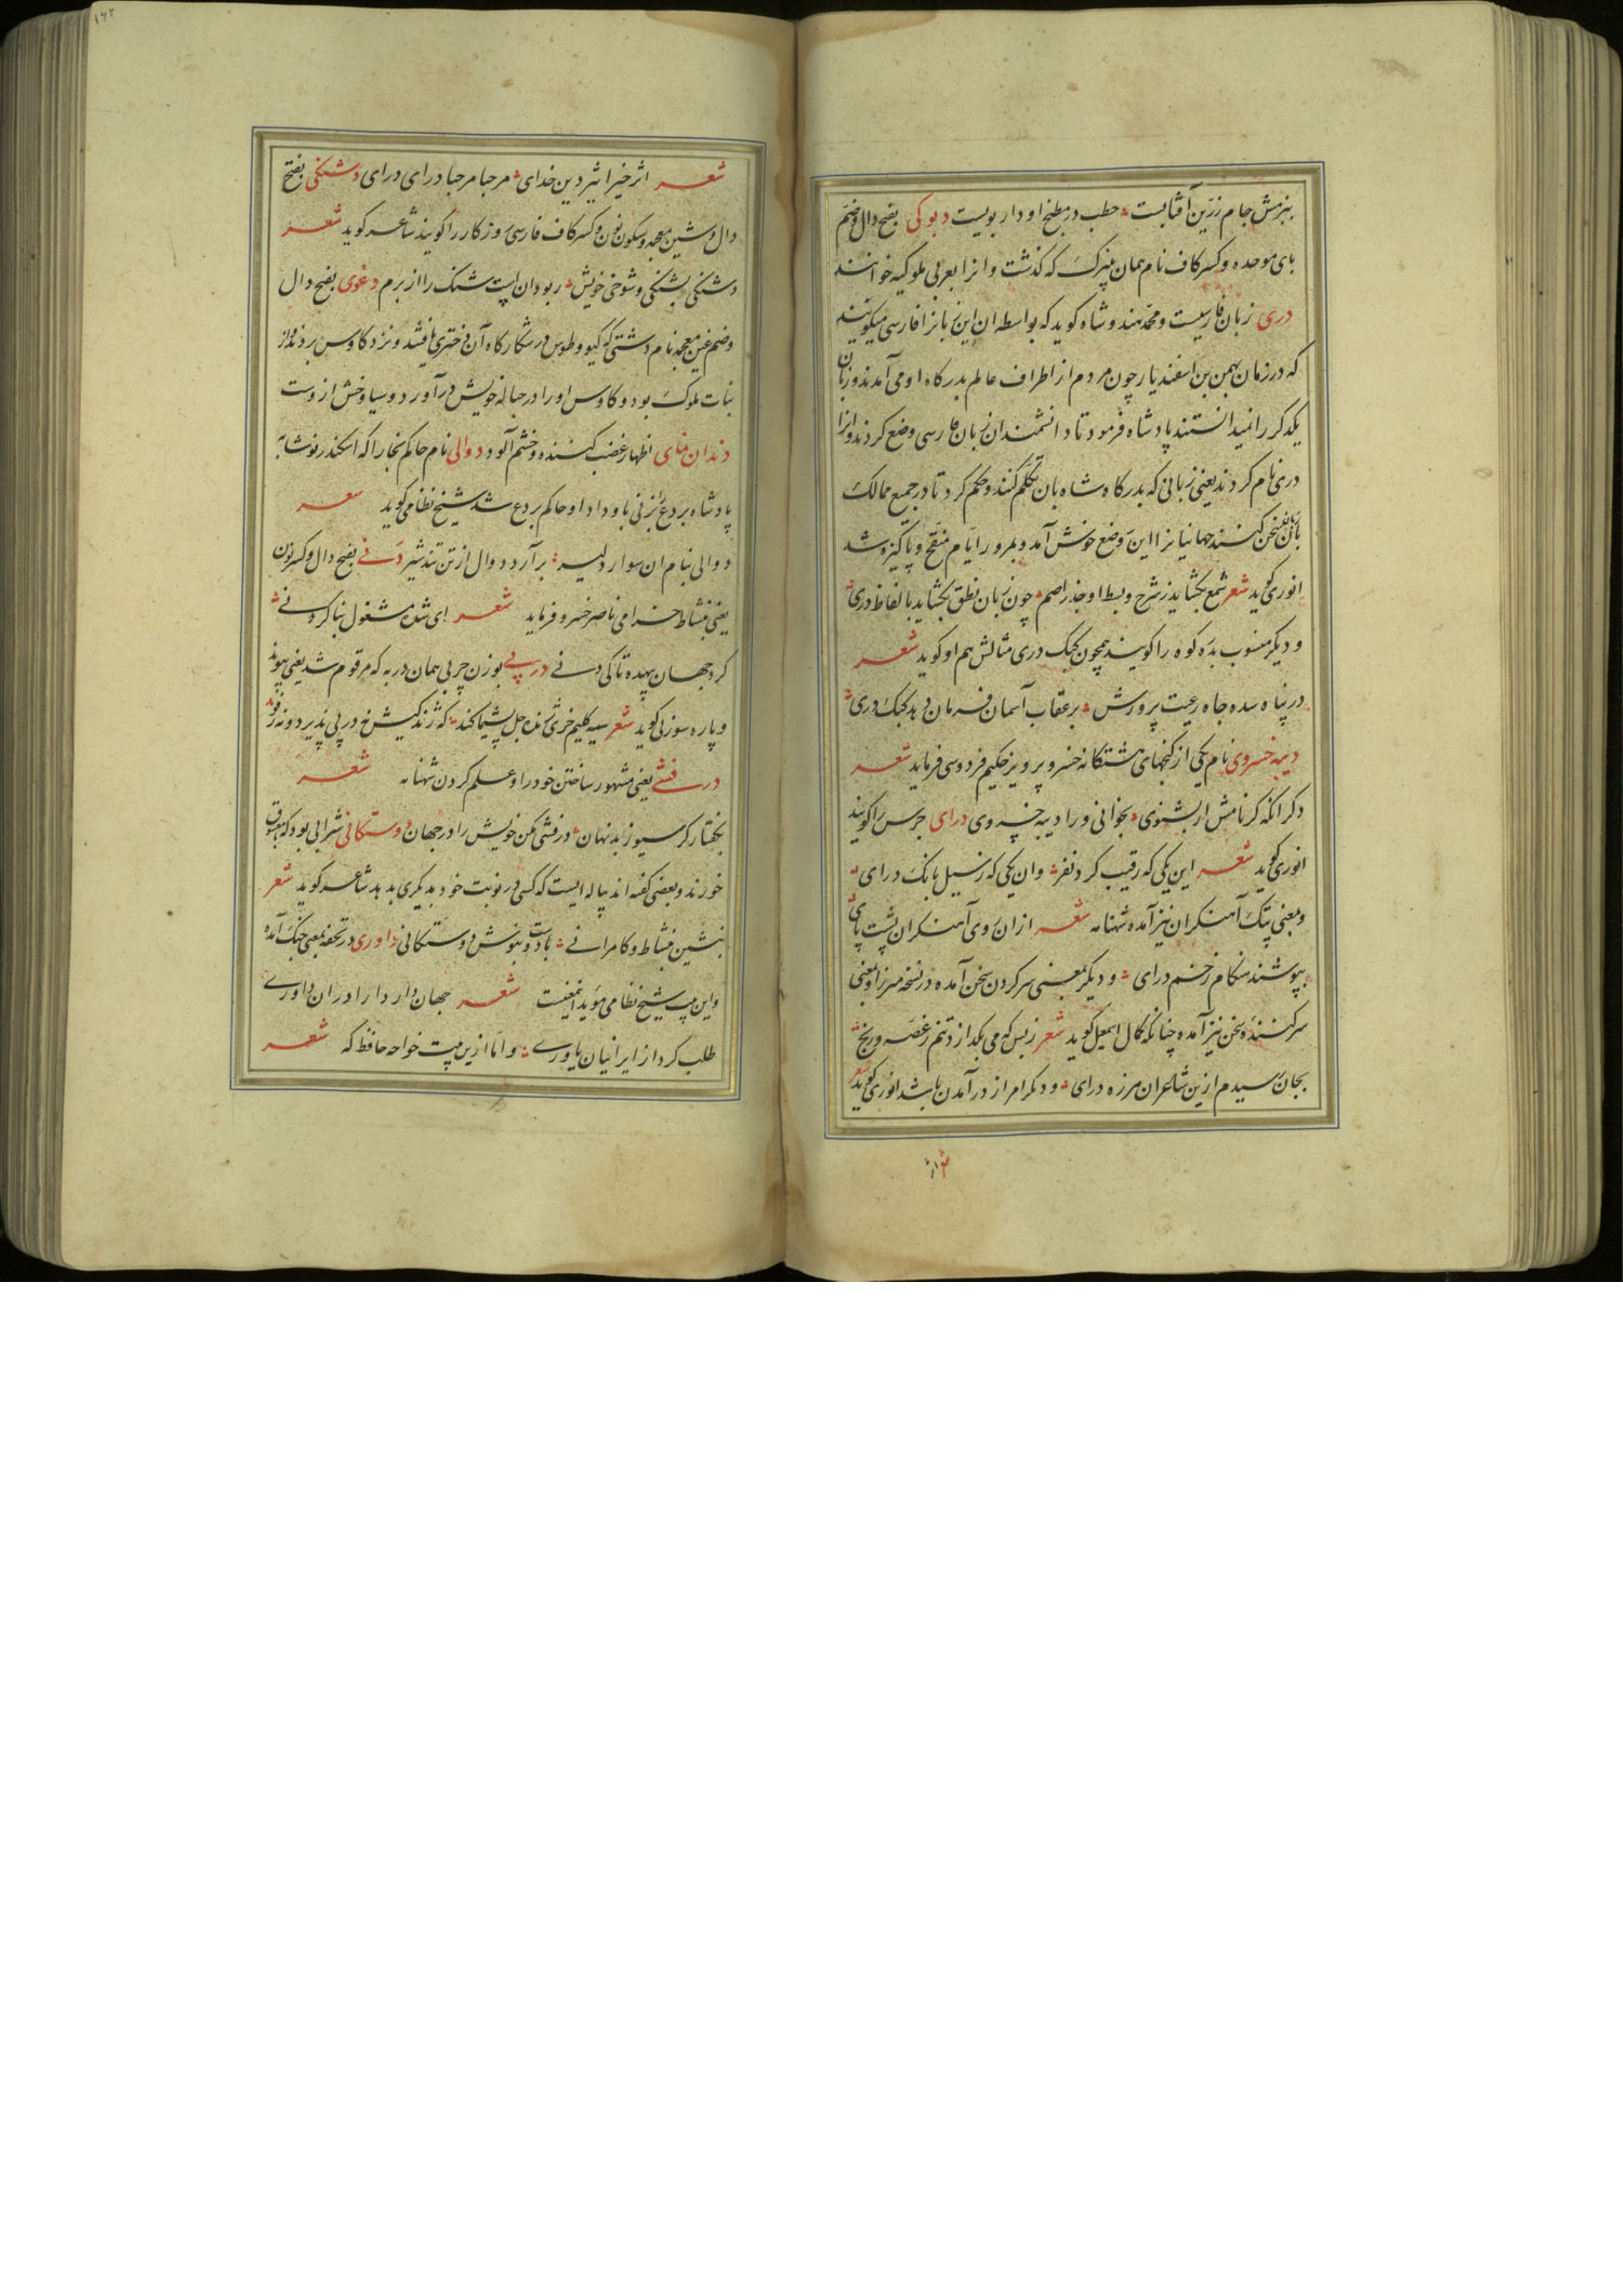 ببزمش جام زرین آفتابست حطب در مطبخ او دار بویست دبوکی بفتح دال وضم
بای موحده وکسر کاف نام همان پنیرک که گذشت وانرا بعربی ملوکیه خوانند
دری زبان فارسیست ومحمد هندوشاه گوید که بواسطه ان این زبانرا فارسی میگویند
که در زمان بهمن بن اسفندیار چون مردم از اطراف عالم بدرگاه او می آمدند وزبان
یکدگر را نمیدانستند پادشاه فرمود تا دانشمندان زبان فارسی وضع کردند وانرا
دری نام کردند یعنی زبانی که بدرگاه شاه بان تکلم کنند وحکم کرد تا در جمیع ممالک
بان زبان سخن کنند جهانیانرا این وضع خوش آمد وبمرور ایام منقح وپاکیزه شد
انوری گوید شعر سمع بگشاید ز شرح وبسط او جذر اصم چون زبان نطق بگشاید بالفاظ دری
ودیگر منسوب بدره کوه را گویند همچون کبک دری مثالش هم او گوید شعر
در پناه سده جاه رعیت پرورش بر عقاب آسمان فرمان دهد کبک دری
دیبه خسروی نام یکی از گنجهای هشتگانه خسرو پرویز حکیم فردوسی فرماید شعر
دگر آنکه گر نامش ار بشنوی بخوانی ورا دیبه خسروی درای جرس را گویند
انوری گوید شعر این یکی که رقیب کرد نفر وان یکی که رسیل بانگ درای
وبمعنی پتک آهنگران نیز آمده شهنامه شعر ازان روی آهنگران پشت پای
بپوشند هنگام زخم درای ودیگر بمعنی سر کردن سخن آمده در نسخه میرزا وبمعنی
سر کننده سخن نیز آمده چنانکه کمال اسمعیل گوید شعر ز بس که می بگدازد تنم ز غصه ورنج
بجان رسیدم ازین شاعران هرزه درای ودیگر امر از در آمدن باشد انوری گوید شعر
۱۶۲
شعر اثر خیر اثیر دین خدای مرحبا مرحبا درای درای دشنگی بفتح
دال وشین معجمه وسکون نون وکسر کاف فارسی روزگار را گویند شاعر گوید شعر
دشنگی بشنگی وشوخی خویش ربود ان بت شنگ را از برم دغوی بفتح دال
وضم غین معجمه نام دشتی که گیو وطوس در شکارگاه آن دختری یافتند ونزد کاوس بردند واز
بنات ملوک بود وکاوس اورا در حباله خویش در آورد وسیاوخش ازوست
دندان نمای اظهار غضب کننده وخشم آلود دوالی نام حاکم بخارا که اسکندر نوشابه
پادشاه بردع را بزنی باو داد او حاکم بردع شد شیخ نظامی گوید شعر
دوالی بنام ان سوار دلیر برآرد دوال از تن تند شیر دنی بفتح دال وکسر نون
یعنی بنشاط خرامی ناصر خسرو فرماید شعر ای شده مشغول بنا کردنی
گرد جهان بیهده تا کی دنی درپی بوزن چربی همان درپه که مرقوم شد یعنی پیوند
وپاره سوزنی گوید شعر سیه گلیم خری ژنده جل پشیما کند که ژندگیش نه درپی پذیرد ونه رفو
درفشی یعنی مشهور ساختن خود را وعلم کردن شهنامه شعر
بگفتار گرسیوز بد نهان درفشی مکن خویش را در جهان دوستکانی شرابی بود که بمعشوق
خورند وبعضی گفته اند پیاله ایست که کسی در نوبت خود بدیگری بدهد شاعر گوید شعر
بنشین بنشاط وکامرانی با دوست بنوش دوستکانی داوری در تحفه بمعنی جنگ آمده
واین بیت شیخ نظامی مؤید اینمعنیست شعر جهان دار دارا دران داوری
طلب کرد از ایرانیان یاوری واما ازین بیت خواجه حافظ که شعر